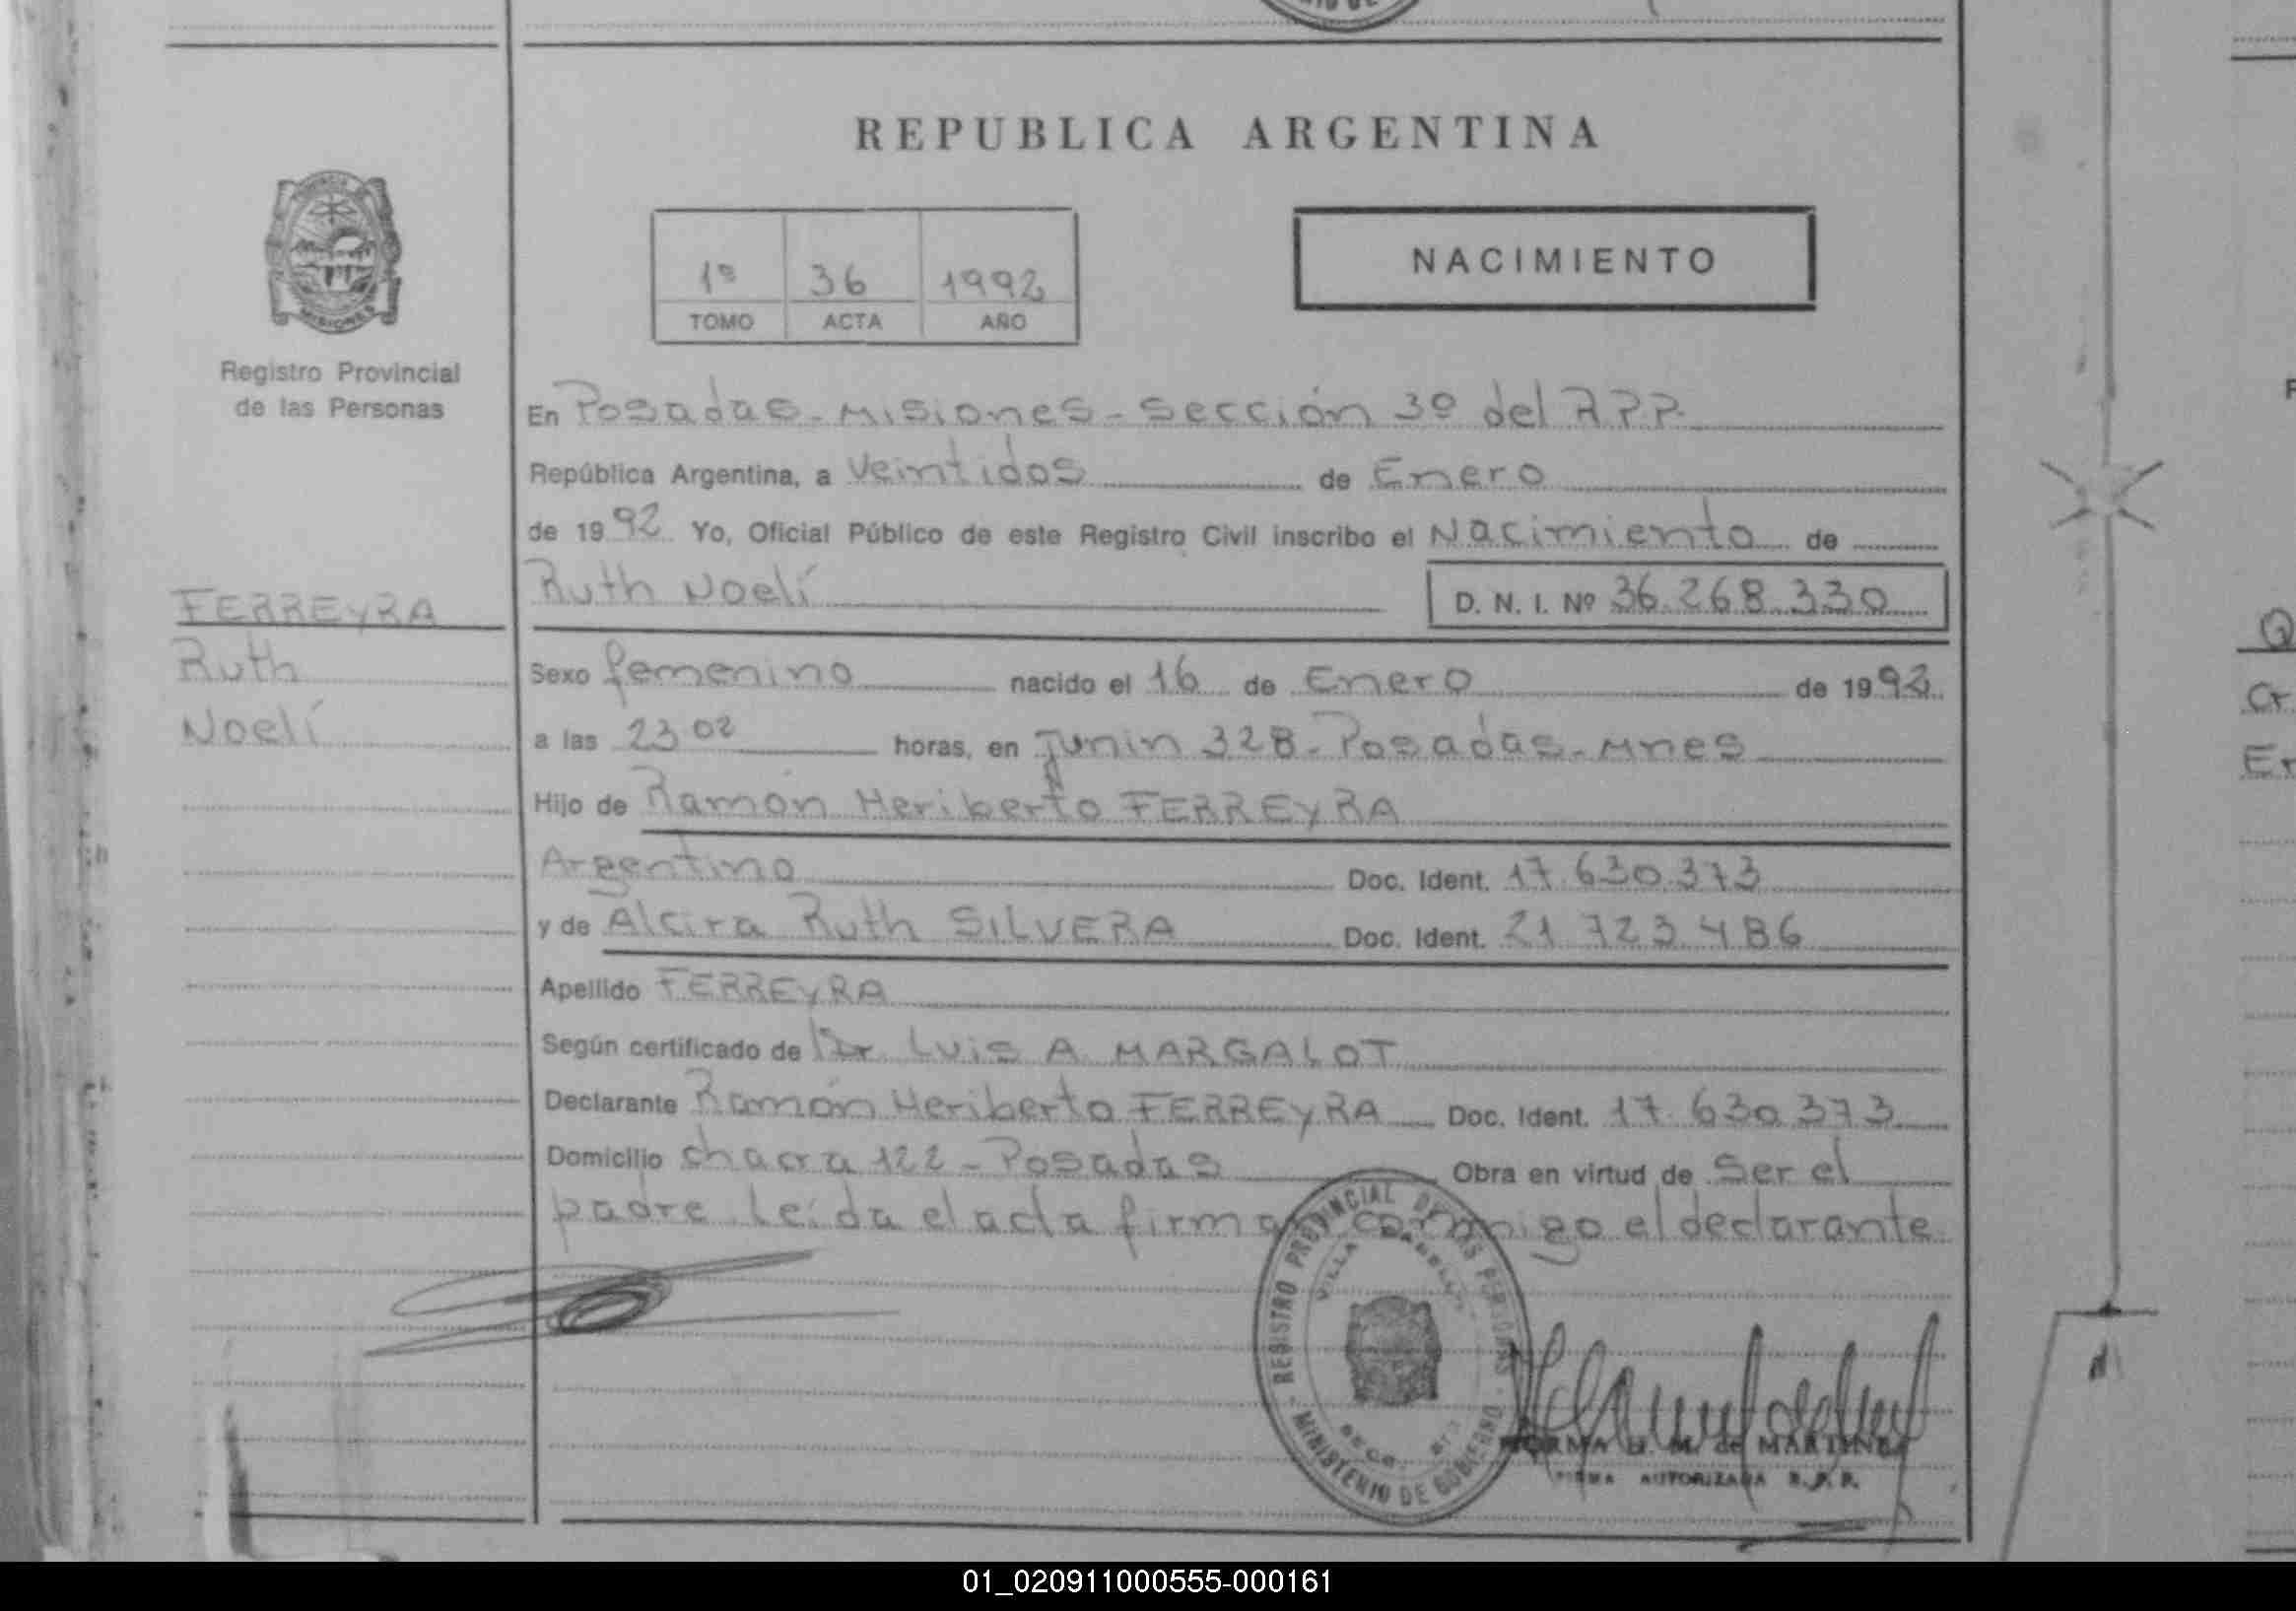 REPUBLICA ARGENTINA
MISIONES
Registro Provincial
de las Personas
1º 36 1992
TOMO ACTA AÑO
NACIMIENTO
En Posadas - Misiones - Sección 3º del R.P.P.
República Argentina, a Veintidos de Enero
de 1992 Yo, Oficial Público de este Registro Civil inscribo el Nacimiento de
Ruth Noelí D. N. I. Nº 36.268.330
FERREYRA
Ruth
Noelí
Sexo femenino nacido el 16 de Enero de 1992
a las 23 02 horas, en Junin 328 - Posadas - Mnes
Hijo de Ramón Heriberto FERREYRA
Argentino Doc. Ident. 17.630.373
y de Alcira Ruth SILVERA Doc. Ident. 21 723 486
Apellido FERREYRA
Según certificado de Dr. Luis A MARGALOT
Declarante Ramón Heriberto FERREYRA Doc. Ident. 17.630.373
Domicilio chacra 122 - Posadas Obra en virtud de Ser el
padre. Leída el acta firma conmigo el declarante
REGISTRO PROVINCIAL DE LAS PERSONAS
VILLA
MINISTERIO DE GOBIERNO
NORMA de MARTINEZ
FIRMA AUTORIZADA R.P.P.
Cr
Er
01_020911000555-000161